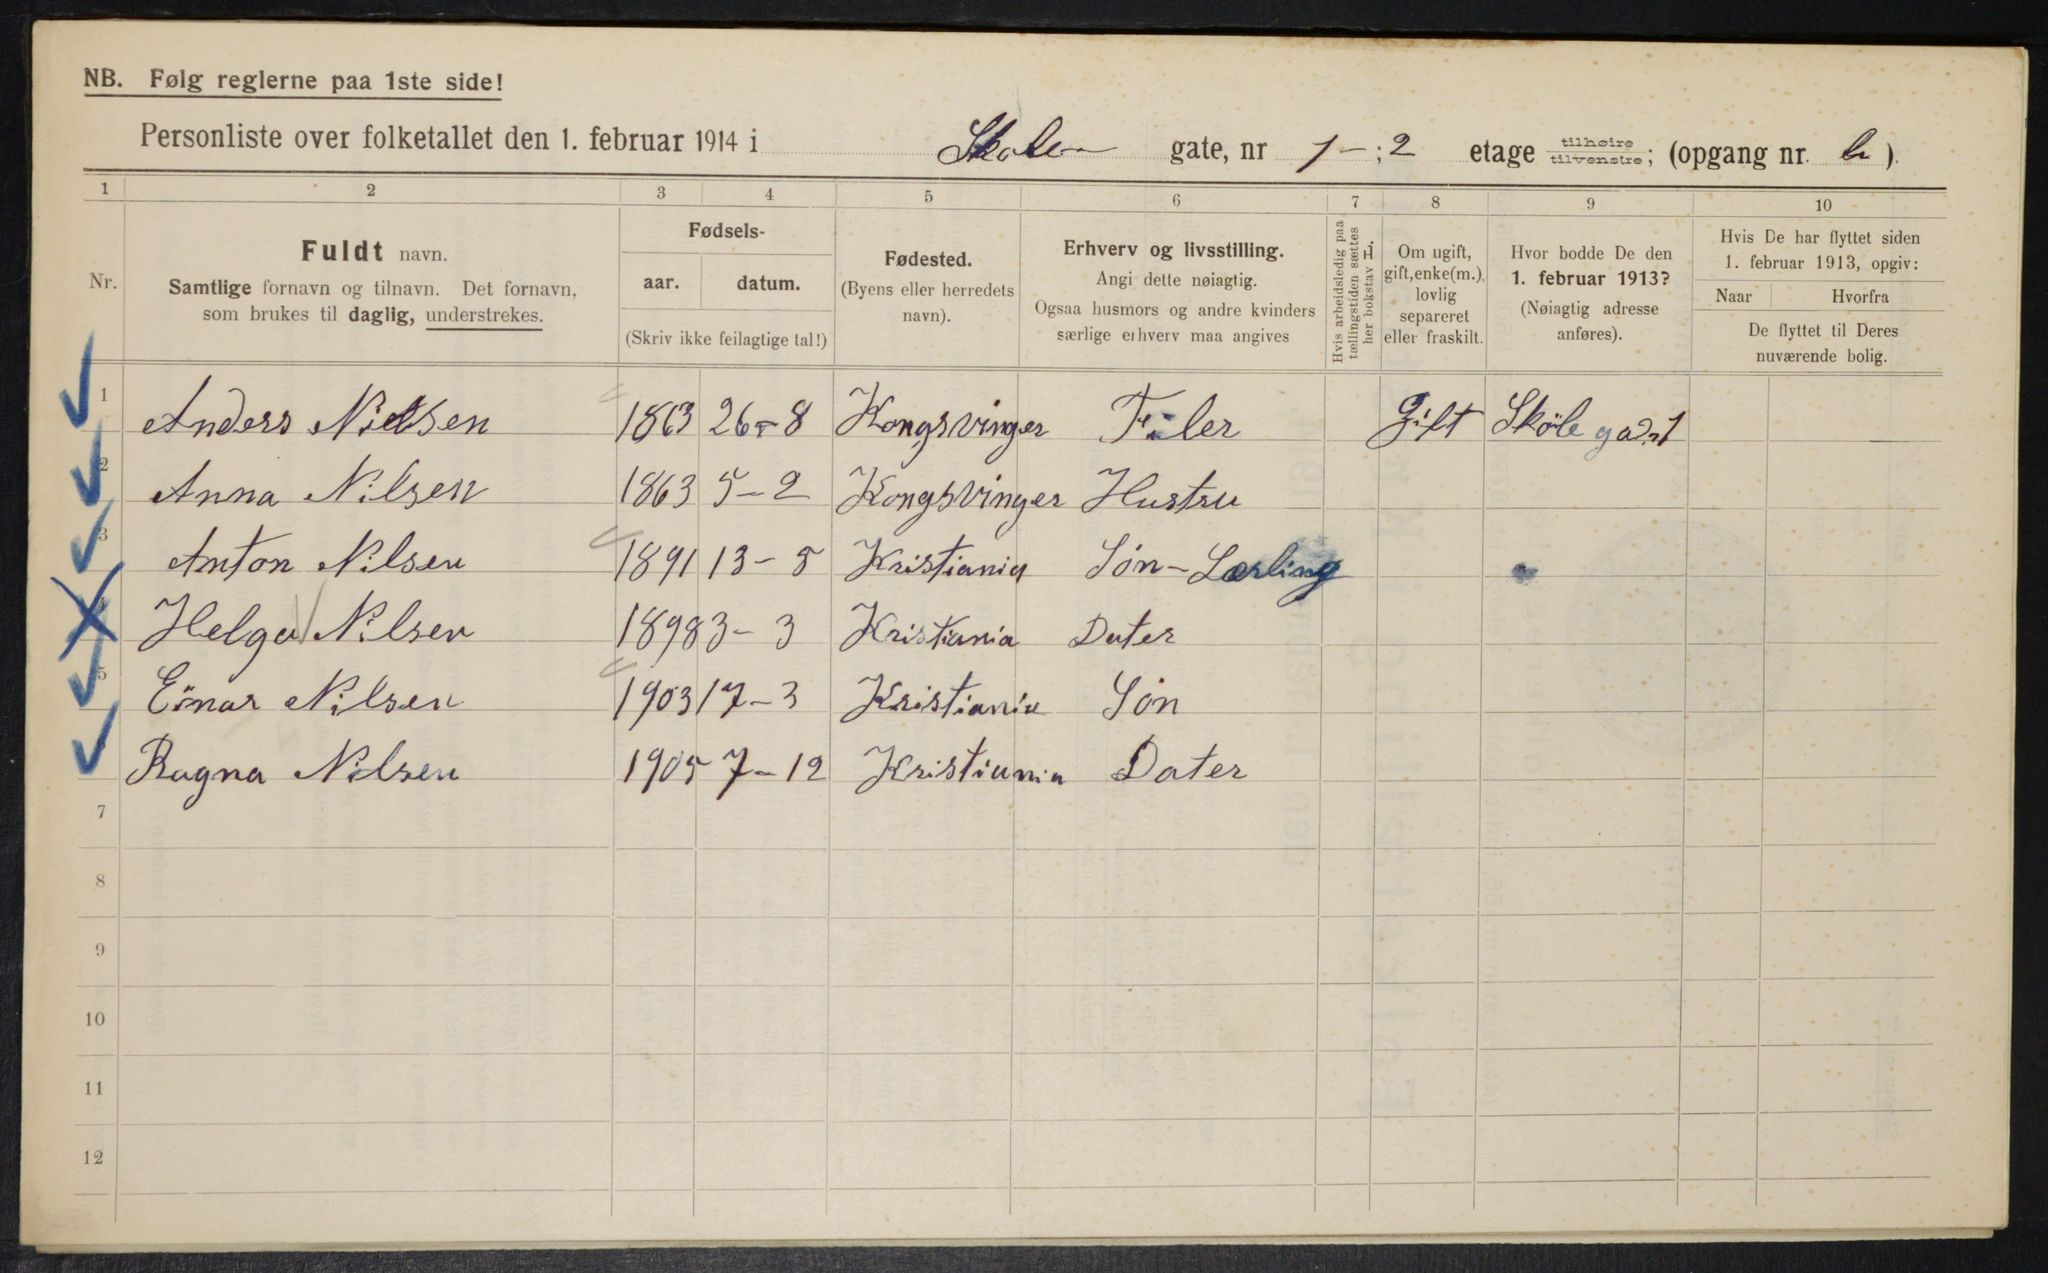 NB. Følg reglerne paa 1ste side!
Personliste over folketallet den 1. februar 1914 i Skole gate, nr 1 – ; 2 etage tilhøire tilvenstre; (opgang nr. b).
1 2 3 4 5 6 7 8 9 10
Nr.
Fuldt navn.
Samtlige fornavn og tilnavn. Det fornavn,
som brukes til daglig, understrekes.
Fødsels-
aar. datum.
(Skriv ikke feilagtige tal!)
Fødested.
(Byens eller herredets
navn).
Erhverv og livsstilling.
Angi dette nøiagtig.
Ogsaa husmors og andre kvinders
særlige erhverv maa angives
Hvis arbeidsledig paa
tællingstiden sættes
her bokstav L.
Om ugift,
gift, enke(m.),
lovlig
separeret
eller fraskilt.
Hvor bodde De den
1. februar 1913?
(Nøiagtig adresse
anføres).
Hvis De har flyttet siden
1. februar 1913, opgiv:
Naar Hvorfra
De flyttet til Deres
nuværende bolig.
1 Anders Nielsen 1863 26-8 Kongsvinger Filer Gift Skolegad. 1
2 Anna Nilsen 1863 5-2 Kongsvinger Hustru
3 Anton Nilsen 1891 13-5 Kristiania Søn-Lærling
4 Helga Nilsen 1898 3-3 Kristiania Dater
5 Einar Nilsen 1903 17-3 Kristiania Søn
Ragna Nilsen 1905 7-12 Kristiania Dater
7
8
9
10
11
12